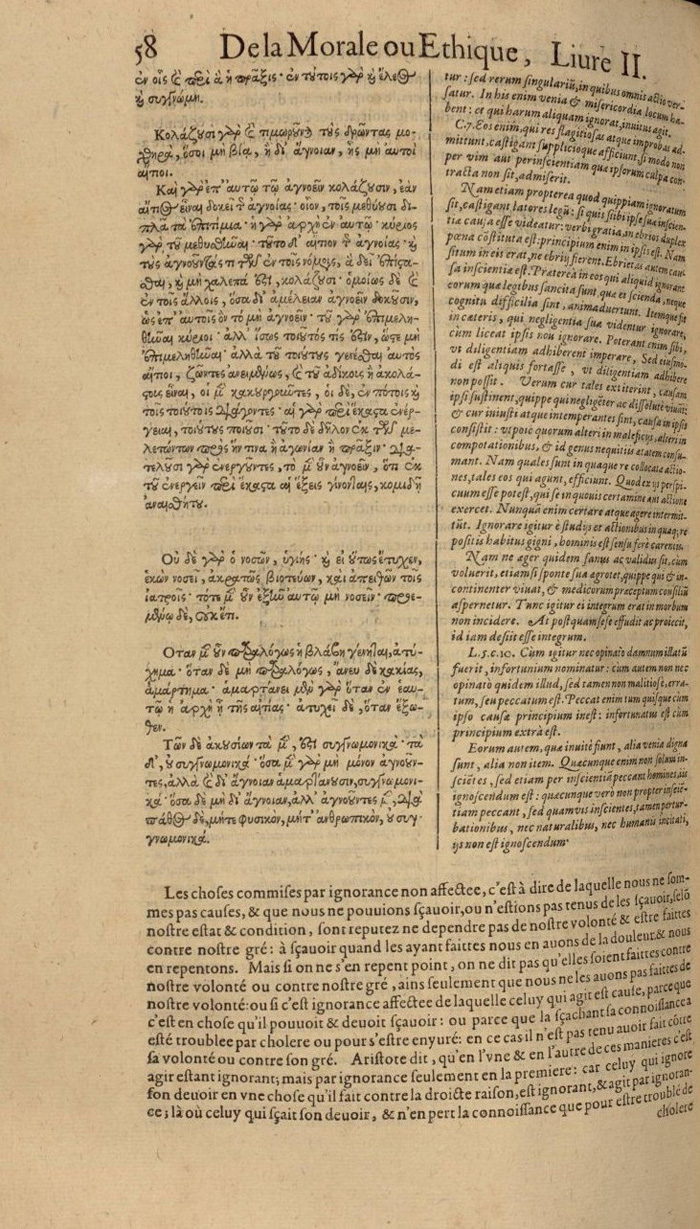 58 De la Morale ou Ethique, Liure II.
ἐν οἷς καὶ περὶ ἃ ἡ πρᾶξις· ἐν τούτοις γὰρ καὶ ἔλεος
καὶ συγγνώμη.
Κολάζουσι γὰρ καὶ τιμωροῦνται τοὺς δρῶντας μο-
χθηρὰ, ὅσοι μὴ βίᾳ, ἢ δι' ἄγνοιαν, ἧς μὴ αὐτοὶ
αἴτιοι.
Καὶ γὰρ ἐπ' αὐτῷ τῷ ἀγνοεῖν κολάζουσιν, ἐὰν
αἴτιος εἶναι δοκεῖ τῆς ἀγνοίας· οἷον, τοῖς μεθύουσι δι-
πλᾶ τὰ ἐπιτίμια· ἡ γὰρ ἀρχὴ ἐν αὐτῷ· κύριος
γὰρ τοῦ μεθυσθῆναι· τοῦτο δ' αἴτιον τῆς ἀγνοίας· καὶ
τοὺς ἀγνοοῦντάς τι τῶν ἐν τοῖς νόμοις, ἃ δεῖ ἐπίστα-
σθαι, καὶ μὴ χαλεπά ἐστι, κολάζουσι· ὁμοίως δὲ καὶ
ἐν τοῖς ἄλλοις, ὅσα δι' ἀμέλειαν ἀγνοεῖν δοκοῦσιν,
ὡς ἐπ' αὐτοῖς ὂν τὸ μὴ ἀγνοεῖν· τοῦ γὰρ ἐπιμελη-
θῆναι κύριοι· ἀλλ' ἴσως τοιοῦτός τις ἐστὶν, ὥστε μὴ
ἐπιμεληθῆναι· ἀλλὰ τοῦ τοιούτους γενέσθαι αὐτοὶ
αἴτιοι, ζῶντες ἀνειμένως, καὶ τοῦ ἀδίκους ἢ ἀκολά-
στους εἶναι, οἱ μὲν κακουργοῦντες, οἱ δὲ, ἐν πότοις καὶ
τοῖς τοιούτοις διάγοντες· αἱ γὰρ περὶ ἕκαστα ἐνέρ-
γειαι, τοιούτους ποιοῦσι· τοῦτο δὲ δῆλον ἐκ τῶν με-
λετώντων πρὸς ἥντινα ἢ ἀγωνίαν ἢ πρᾶξιν· δια-
τελοῦσι γὰρ ἐνεργοῦντες, τὸ μὲν οὖν ἀγνοεῖν, ὅτι ἐκ
τοῦ ἐνεργεῖν περὶ ἕκαστα αἱ ἕξεις γίνονται, κομιδῆ
ἀναισθήτου.
Οὐ δὲ γὰρ ὁ νοσῶν, ὑγιής· καὶ εἰ οὕτως ἔτυχεν,
ἑκὼν νοσεῖ, ἀκρατῶς βιοτεύων, καὶ ἀπειθῶν τοῖς
ἰατροῖς· τότε μὲν οὖν ἐξῆν αὐτῷ μὴ νοσεῖν· προε-
μένῳ δὲ, οὐκ ἔτι.
Ὅταν μὲν οὖν παραλόγως ἡ βλάβη γένηται, ἀτύ-
χημα· ὅταν δὲ μὴ παραλόγως, ἄνευ δὲ κακίας,
ἁμάρτημα· ἁμαρτάνει μὲν γὰρ ὅταν ἐν ἑαυ-
τῷ ἡ ἀρχὴ ᾖ τῆς αἰτίας· ἀτυχεῖ δὲ, ὅταν ἔξω-
θεν.
Τῶν δὲ ἀκουσίων τὰ μὲν, ἐστὶ συγγνωμονικά· τὰ
δ', οὐ συγγνωμονικά· ὅσα μὲν γὰρ μὴ μόνον ἀγνοοῦν-
τες, ἀλλὰ καὶ δι' ἄγνοιαν ἁμαρτάνουσιν, συγγνωμονι-
κά· ὅσα δὲ μὴ δι' ἄγνοιαν, ἀλλ' ἀγνοοῦντες μὲν, διὰ
πάθος δὲ, μήτε φυσικὸν, μήτ' ἀνθρωπικὸν, οὐ συγ-
γνωμονικά.
tur: sed rerum singulariũ, in quibus omnis actio ver-
satur. In his enim venia & misericordia locum ha-
bent: et qui harum aliquam ignorat, inuitus agit.
C.7. Eos enim, qui res flagitiosas atque improbas ad-
mittunt, castigant supplicioque afficiunt, si modo non
per vim aut per inscientiam quæ ipsorum culpa con-
tracta non sit, admiserit.
Nam etiam propterea quod quippiam ignoratum
sit, castigant latores legũ: si quis sibi ipse suæ inscien-
tiæ causa esse videatur: verbi gratia, in ebrios duplex
pœna cõstituta est: principium enim in ipsis est. Nam
situm in eis erat, ne ebrij fierent. Ebrietas autem cau-
sa inscientiæ est. Præterea in eos qui aliquid ignorant
eorum quæ legibus sancita sunt, quæ et scienda, neque
cognitu difficilia sint, animaduertunt. Itemque sit
in cæteris, qui negligentia sua videntur ignorare,
cùm liceat ipsis non ignorare. Poterant enim sibi,
vt diligentiam adhiberent imperare. Sed eiusmo-
di est aliquis fortasse, vt diligentiam adhibere
non possit. Verum cur tales extiterint, causam
ipsi sustinent, quippe qui negligẽter ac dissolutè viuãt:
& cur iniusti atque intemperantes sint, causa in ipsis
consistit: vtpote quorum alteri in maleficijs, alteri in
compotationibus, & id genus nequitiis ætatem consu-
mant. Nam quales sunt in quaque re collocatæ actio-
nes, tales eos qui agunt, efficiunt. Quod ex ijs perspi-
cuum esse potest, qui se in quouis certamine aut actione
exercet. Nunquã enim certare atque agere intermit-
tũt. Ignorare igitur è studijs et actionibus in quaq; re
positis habitus gigni, hominis est sensu ferè carentis.
Nam ne æger quidem sanus ac validus sit, cùm
voluerit, etiamsi sponte sua ægrotet, quippe qui & in-
continenter viuat, & medicorum præceptum consiliũ
aspernetur. Tunc igitur ei integrum erat in morbum
non incidere. At postquam sese effudit ac proiecit,
id iam desiit esse integrum.
L.5.c.10. Cùm igitur nec opinatò damnum illatũ
fuerit, infortunium nominatur: cùm autem non nec
opinatò quidem illud, sed tamen non malitiosè, erra-
tum, seu peccatum est. Peccat enim tum quisque cùm
ipso causæ principium inest: infortunatus est cùm
principium extrà est.
Eorum autem, quæ inuitè fiunt, alia venia digna
sunt, alia non item. Quæcunque enim non solùm in-
scientes, sed etiam per inscientiã peccant homines, iis
ignoscendum est: quæcunque verò non propter inscien-
tiam peccant, sed quamvis inscientes, tamen pertur-
bationibus, nec naturalibus, nec humanis incitati,
ijs non est ignoscendum.
Les choses commises par ignorance non affectee, c'est à dire de laquelle nous ne som-
mes pas causes, & que nous ne pouuions sçauoir, ou n'estions pas tenus de les sçauoir, selõ
nostre estat & condition, sont reputez ne dependre pas de nostre volonté & estre faittes
contre nostre gré: à sçauoir quand les ayant faittes nous en auons de la douleur & nous
en repentons. Mais si on ne s'en repent point, on ne dit pas qu'elles soient faittes contre
nostre volonté ou contre nostre gré, ains seulement que nous ne les auons pas faittes de
nostre volonté: ou si c'est ignorance affectee de laquelle celuy qui agit est cause, parce que
c'est en chose qu'il pouuoit & deuoit sçauoir: ou parce que la sçachant sa connoissance a
esté troublee par cholere ou pour s'estre enyuré: en ce cas il n'est pas tenu auoir fait cõtre
sa volonté ou contre son gré. Aristote dit, qu'en l'vne & en l'autre de ces manieres c'est
agir estant ignorant; mais par ignorance seulement en la premiere: car celuy qui ignore
son deuoir en vne chose qu'il fait contre la droicte raison, est ignorant, & agit par ignoran-
ce; là où celuy qui sçait son deuoir, & n'en pert la connoissance que pour estre troublé de
cholere